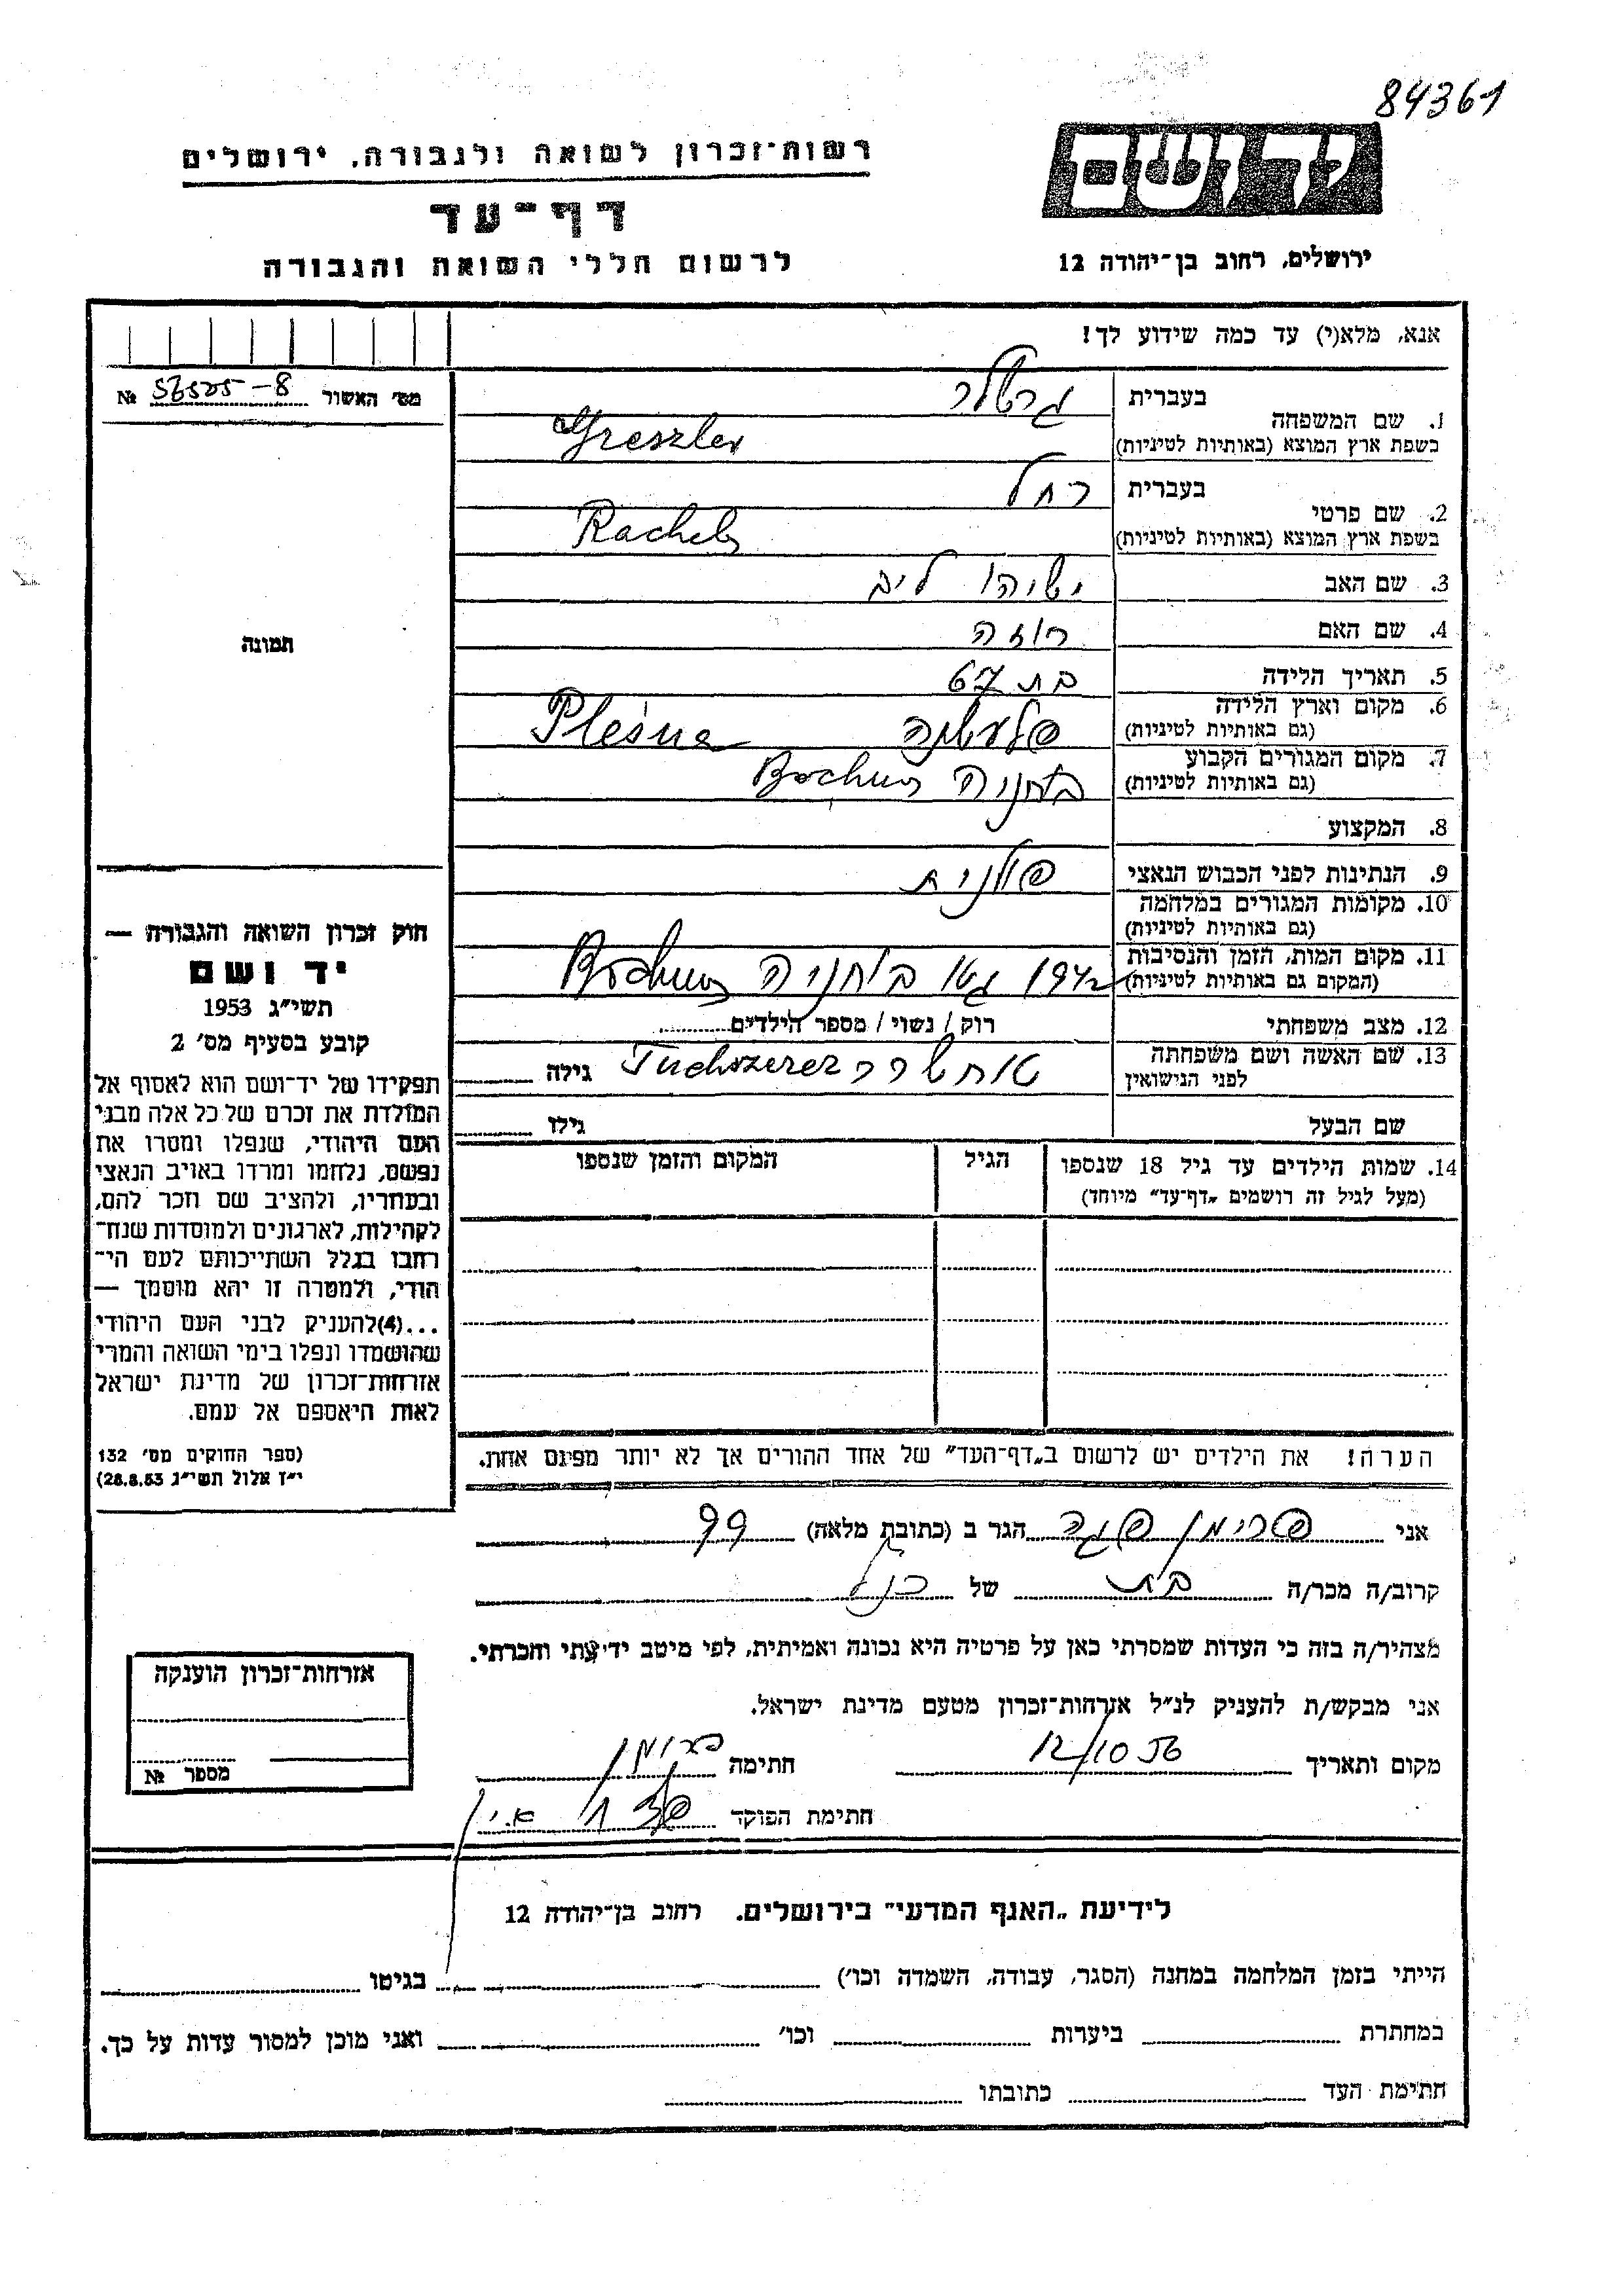 84361
רשות־זכרון לשואה ולגבורה, ירושלים
דף־עד
לרשום חללי השואה והגבורה
יד ושם
ירושלים, רחוב בן־יהודה 12
אנא, מלא(י) עד כמה שידוע לך!
מס׳ האשור № 56525-8
תמונה
בעברית גרשלר
1. שם המשפחה
בשפת ארץ המוצא (באותיות לטיניות) Greszler
בעברית רחל
2. שם פרטי
בשפת ארץ המוצא (באותיות לטיניות) Rachel
3. שם האב ישיהו ליב
4. שם האם רוזה
5. תאריך הלידה בת 67
6. מקום וארץ הלידה
(גם באותיות לטיניות) פלעשנה Pleśna
7. מקום המגורים הקבוע
(גם באותיות לטיניות) בוחניה Bochnia
8. המקצוע
9. הנתינות לפני הכבוש הנאצי פולנית
10. מקומות המגורים במלחמה
(גם באותיות לטיניות)
11. מקום המות, הזמן והנסיבות
(המקום גם באותיות לטיניות) 1942 גטו בוחניה Bochnia
12. מצב משפחתי רוק / נשוי / מספר הילדים
13. שם האשה ושם משפחתה
לפני הנישואין טוחשרר Tuchszerer גילה
שם הבעל גילו
14. שמות הילדים עד גיל 18 שנספו הגיל המקום והזמן שנספו
(מעל לגיל זה רושמים „דף־עד״ מיוחד)
חוק זכרון השואה והגבורה —
יד ושם
תשי״ג 1953
קובע בסעיף מס׳ 2
תפקידו של יד־ושם הוא לאסוף אל
המולדת את זכרם של כל אלה מבני
העם היהודי, שנפלו ומסרו את
נפשם, נלחמו ומרדו באויב הנאצי
ובעוזריו, ולהציב שם וזכר להם,
לקהילות, לארגונים ולמוסדות שנח־
רחבו בגלל השתייכותם לעם הי־
הודי, ולמטרה זו יהא מוסמך —
...(4)להעניק לבני העם היהודי
שהושמדו ונפלו בימי השואה והמרי
אזרחות־זכרון של מדינת ישראל
לאות היאספם אל עמם.
(ספר החוקים מס׳ 132
י״ז אלול תשי״ג 28.8.53)
הערה! את הילדים יש לרשום ב„דף־העד״ של אחד ההורים אך לא יותר מפעם אחת.
אני פרימן פגה הגר ב (כתובת מלאה) 99
קרוב/ה מכר/ה בת של כנ״ל
מצהיר/ה בזה כי העדות שמסרתי כאן על פרטיה היא נכונה ואמיתית, לפי מיטב ידיעתי והכרתי.
אני מבקש/ת להעניק לנ״ל אזרחות־זכרון מטעם מדינת ישראל.
מקום ותאריך 12/10 56 חתימה
חתימת הפוקד
אזרחות־זכרון הוענקה
מספר №
לידיעת „האגף המדעי״ בירושלים. רחוב בן־יהודה 12
הייתי בזמן המלחמה במחנה (הסגר, עבודה, השמדה וכו׳) בגיטו
במחתרת ביערות וכו׳ ואני מוכן למסור עדות על כך.
חתימת העד כתובתו